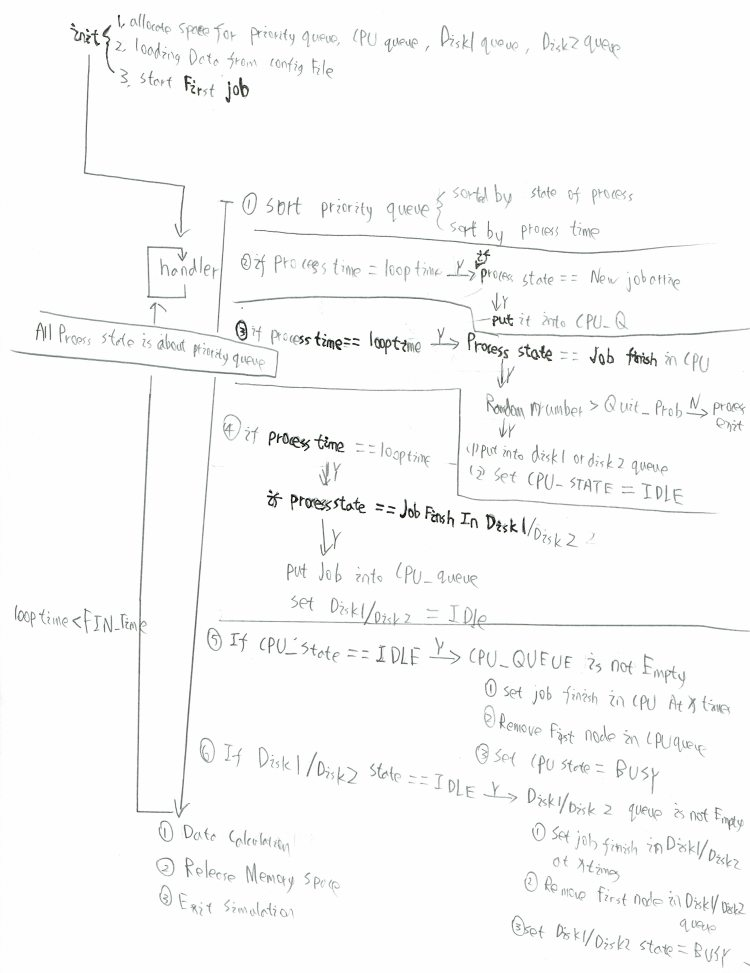 init { 1. allocate space for priority queue, CPU queue, Disk1 queue, Disk2 queue
2. loading Data from config File
3. start First job
① sort priority queue { sorted by state of process
sort by process time
handler
② if Process time = looptime Y→ if process state == New job
↓Y
put it into CPU_Q
All Process state is about priority queue
③ if process time == looptime Y→ Process state == Job finish in CPU
↓Y
Random number > Quit_Prob N→ process
exit
↓Y
(1) put into disk1 or disk2 queue
(2) Set CPU_STATE = IDLE
④ if process time == looptime
↓Y
if process state == Job Finsh In Disk1/Disk2
↓Y
put Job into CPU_queue
set Disk1/Disk2 = IDLe
looptime < FIN_Time
⑤ If CPU_state == IDLE Y→ CPU_QUEUE is not Empty
① set job finish in CPU At X times
② Remove First node in CPU queue
③ Set CPU state = BUSY
⑥ If Disk1/Disk2 state == IDLE Y→ Disk1/Disk2 queue is not Empty
① Set job finish in Disk1/Disk2
at X times
② Remove first node in Disk1/Disk2
queue
③ set Disk1/Disk2 state = BUSY
① Data Calculation
② Release Memory space
③ Exit Simulation